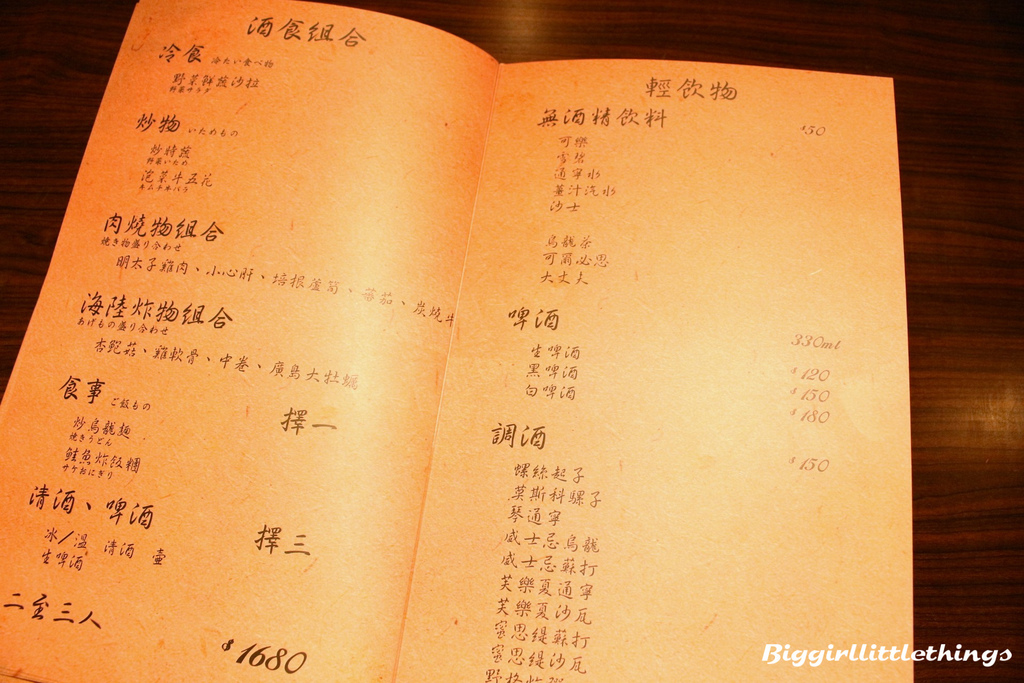 酒食組合
冷食 冷たい食べ物
野菜鮮蔬沙拉
野菜サラダ
炒物 いためもの
炒時蔬
野菜いため
泡菜牛五花
キムチ牛バラ
肉燒物組合
焼き物盛り合わせ
明太子雞肉、小心肝、培根蘆筍、蕃茄、炭燒牛
海陸炸物組合
あげもの盛り合わせ
杏鮑菇、雞軟骨、中卷、廣島大牡蠣
食事 ご飯もの
擇一
炒烏龍麵
焼きうどん
鮭魚炸飯糰
サケおにぎり
清酒、啤酒
擇三
冰/溫 清酒 壺
生啤酒
二至三人
$1680
輕飲物
無酒精飲料 $50
可樂
雪碧
通寧水
薑汁汽水
沙士
烏龍茶
可爾必思
大丈夫
啤酒 330ml
生啤酒 $120
黑啤酒 $150
白啤酒 $180
調酒 $150
螺絲起子
莫斯科騾子
琴通寧
威士忌烏龍
威士忌蘇打
芙樂夏通寧
芙樂夏沙瓦
蜜思緹蘇打
蜜思緹沙瓦
野格炸
Biggirllittlethings